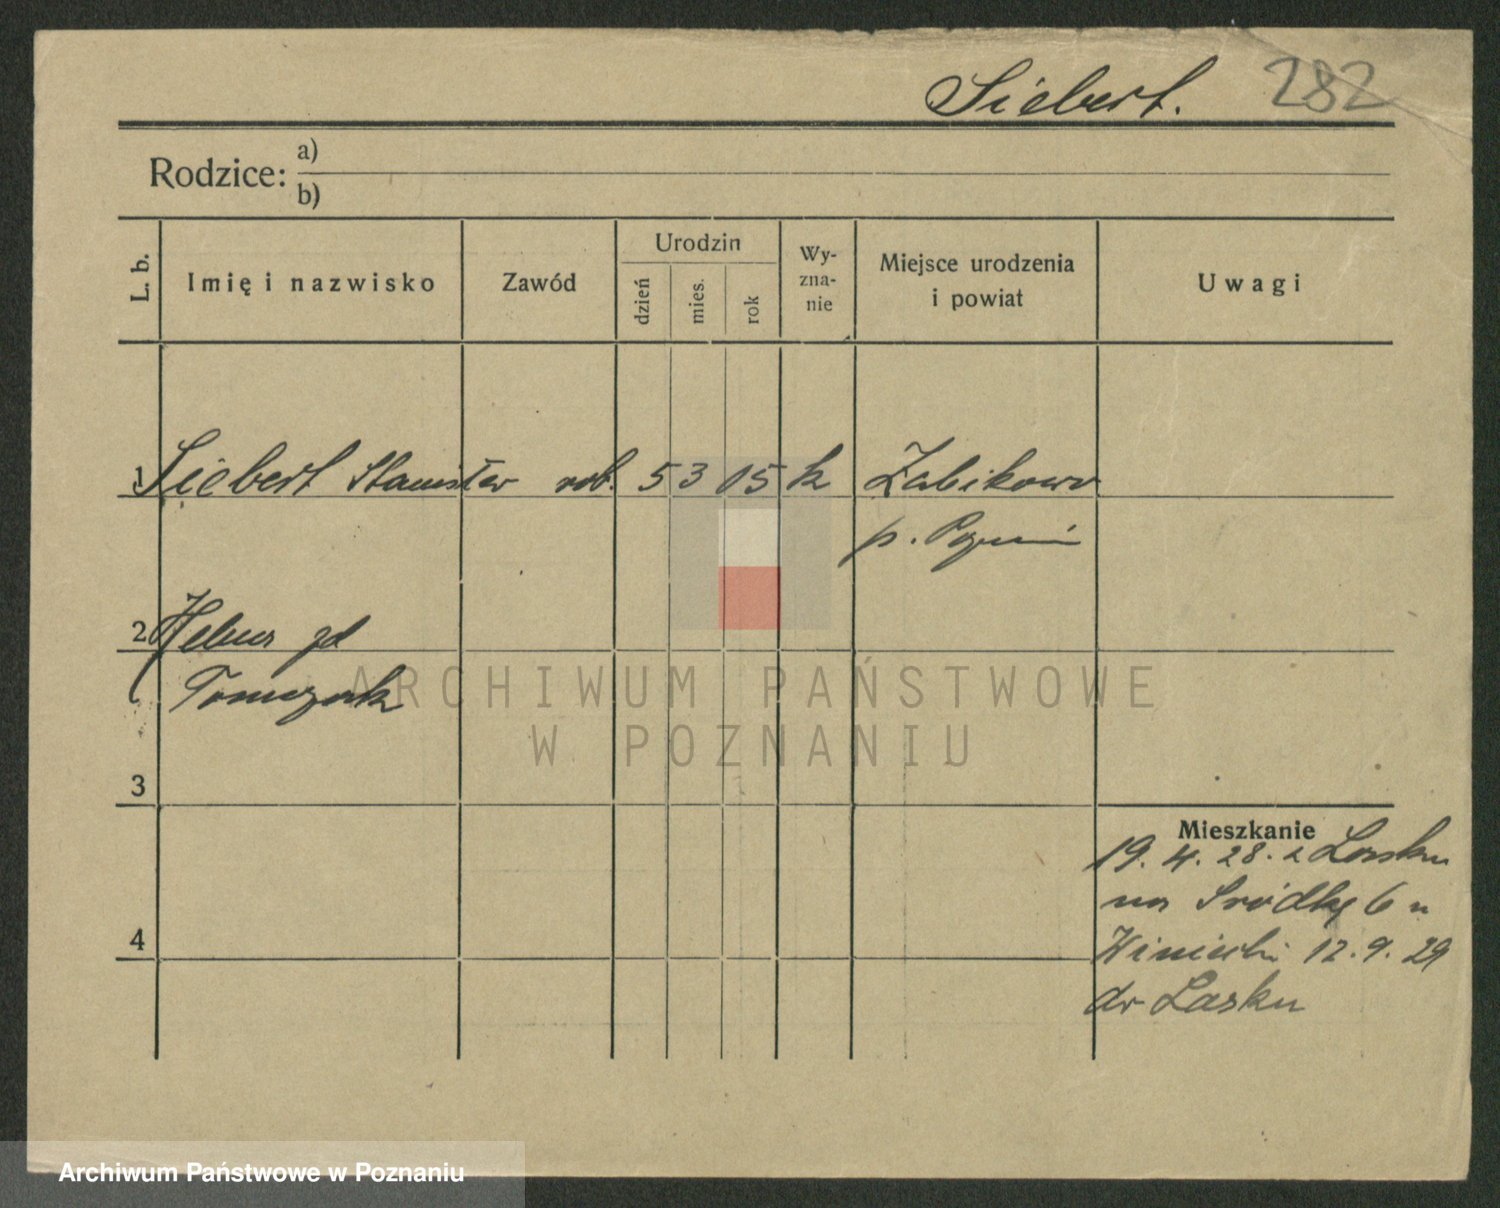 Siebert. 282
Rodzice: a)
b)
L. b. Imię i nazwisko Zawód Urodzin dzień mies. rok Wy-zna-nie Miejsce urodzenia i powiat Uwagi
1 Siebert Stanisław rob. 5 3 05 k Żabikowo
p. Poznań
2 Helena zd
Tomczak
ARCHIWUM PAŃSTWOWE
W POZNANIU
3
Mieszkanie
19. 4. 28. z Lasku
na Śródkę 6 u
4 12. 9. 29
do Lasku
Archiwum Państwowe w Poznaniu